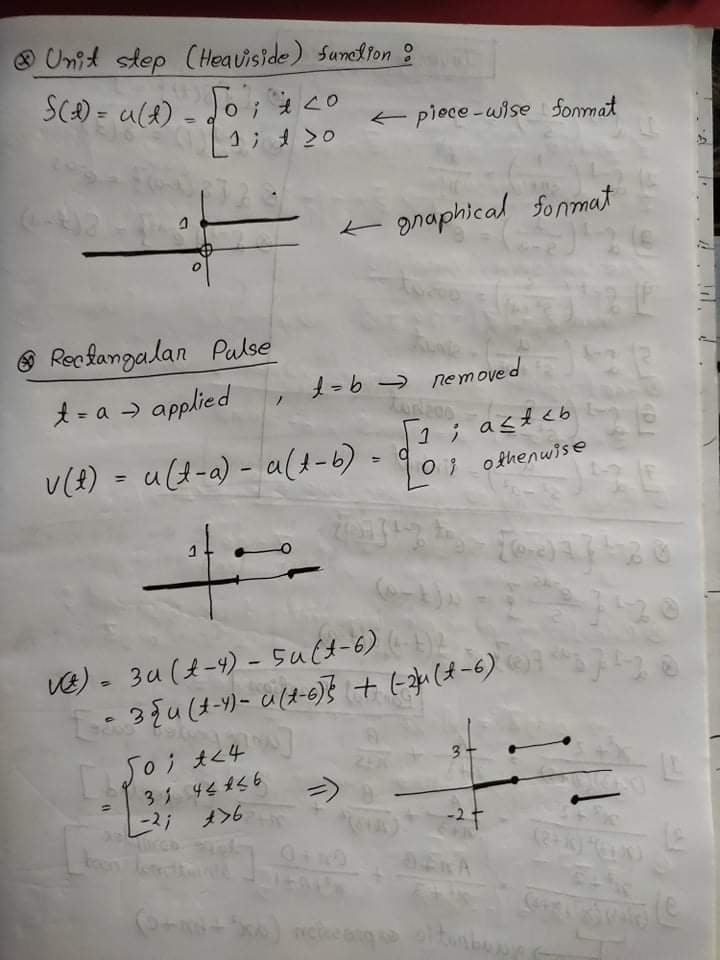 ⊛ Unit step (Heaviside) function :
f(t) = u(t) = { 0 ; t < 0
1 ; t ≥ 0
← piece-wise format
1
0
← graphical format
⊛ Rectangular Pulse
t = a → applied , t = b → removed
v(t) = u(t-a) - u(t-b) = { 1 ; a ≤ t < b
0 ; otherwise
1
v(t) = 3u(t-4) - 5u(t-6)
= 3{u(t-4) - u(t-6)} + (-2)u(t-6)
= { 0 ; t < 4
3 ; 4 ≤ t ≤ 6
-2 ; t > 6
⇒
3
-2